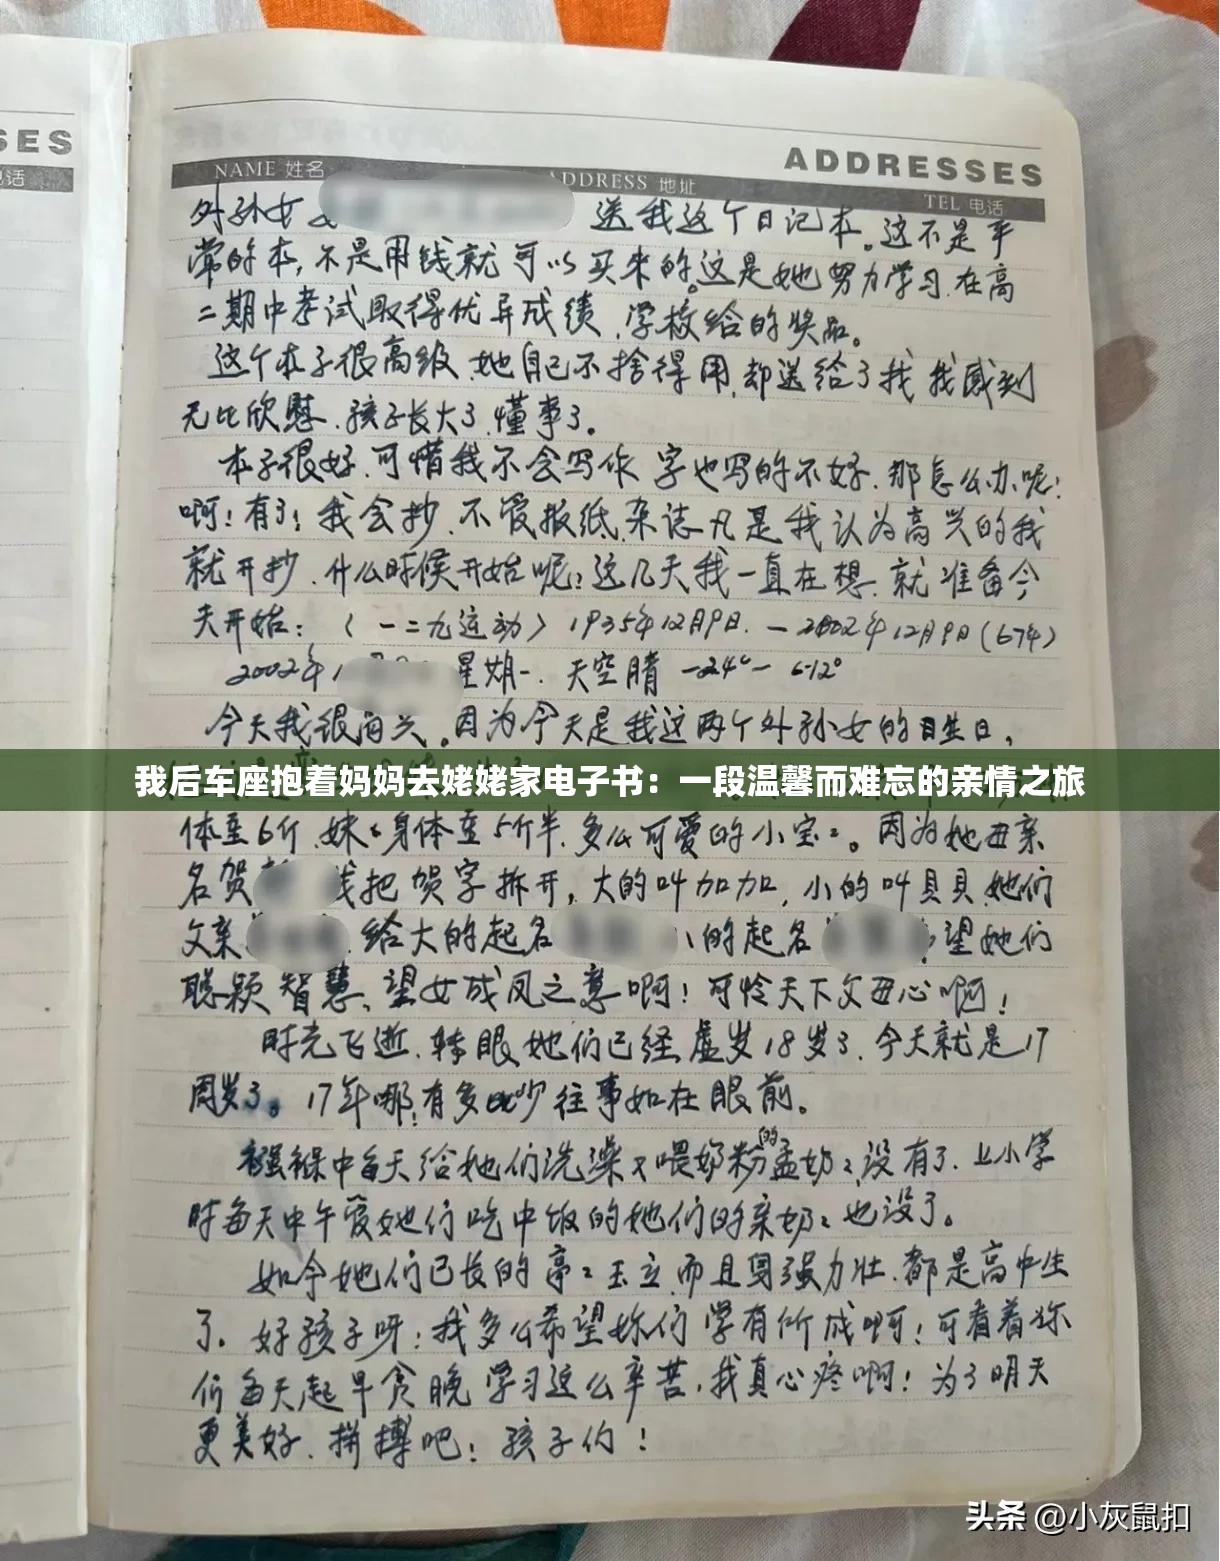 SES
电话
ADDRESSES
NAME 姓名
ADDRESS 地址
TEL 电话
外孙女 送我这个日记本。这不是平
常的本,不是用钱就可以买来的。这是她努力学习,在高
二期中考试取得优异成绩,学校给的奖品。
这个本子很高级,她自己不捨得用,却送给了我,我感到
无比欣慰,孩子长大了,懂事了。
本子很好,可惜我不会写作,字也写的不好,那怎么办呢!
啊!有了!我会抄,不管报纸,杂志凡是我认为高兴的我
就开抄,什么时候开始呢?这几天我一直在想,就准备今
天开始:〈一二九运动〉1935年12月9日.—2002年12月9日(67年)
2002年1 星期一. 天空晴 -24°— 6-12°
今天我很高兴。因为今天是我这两个外孙女的生日,
我后车座抱着妈妈去姥姥家电子书:一段温馨而难忘的亲情之旅
体重6斤,妹々身体重5斤半,多么可爱的小宝々。因为她母亲
名贺 把贺字拆开,大的叫加加,小的叫贝贝,她们
父亲 给大的起名 小的起名 望她们
聪颖智慧、望女成凤之意啊!可怜天下父母心啊!
时光飞逝,转眼她们已经虚岁18岁了,今天就是17
周岁了。17年哪!有多少往事如在眼前。
襁褓中每天给她们洗澡又喂奶粉的孟奶々没有了,上小学
时每天中午管她们吃中饭的她们的亲奶々也没了。
如今她们已长的亭々玉立,而且身强力壮,都是高中生
了。好孩子呀!我多么希望你们学有所成啊!可看着你
们每天起早贪晚学习这么辛苦,我真心疼啊!为了明天
更美好,拼搏吧!孩子们!
头条 @小灰鼠扣